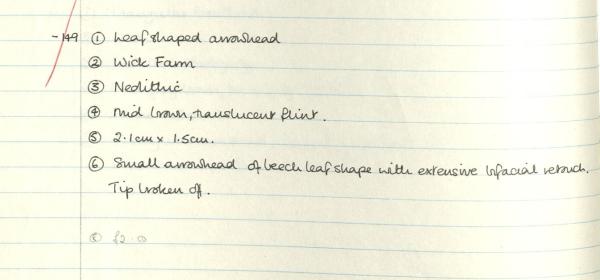 -149 ① Leaf shaped arrowhead
② Wick Farm
③ Neolithic
④ Mid brown, translucent flint.
⑤ 2.1cm x 1.5cm.
⑥ Small arrowhead of beech leaf shape with extensive bifacial retouch.
Tip broken off.
£2.0